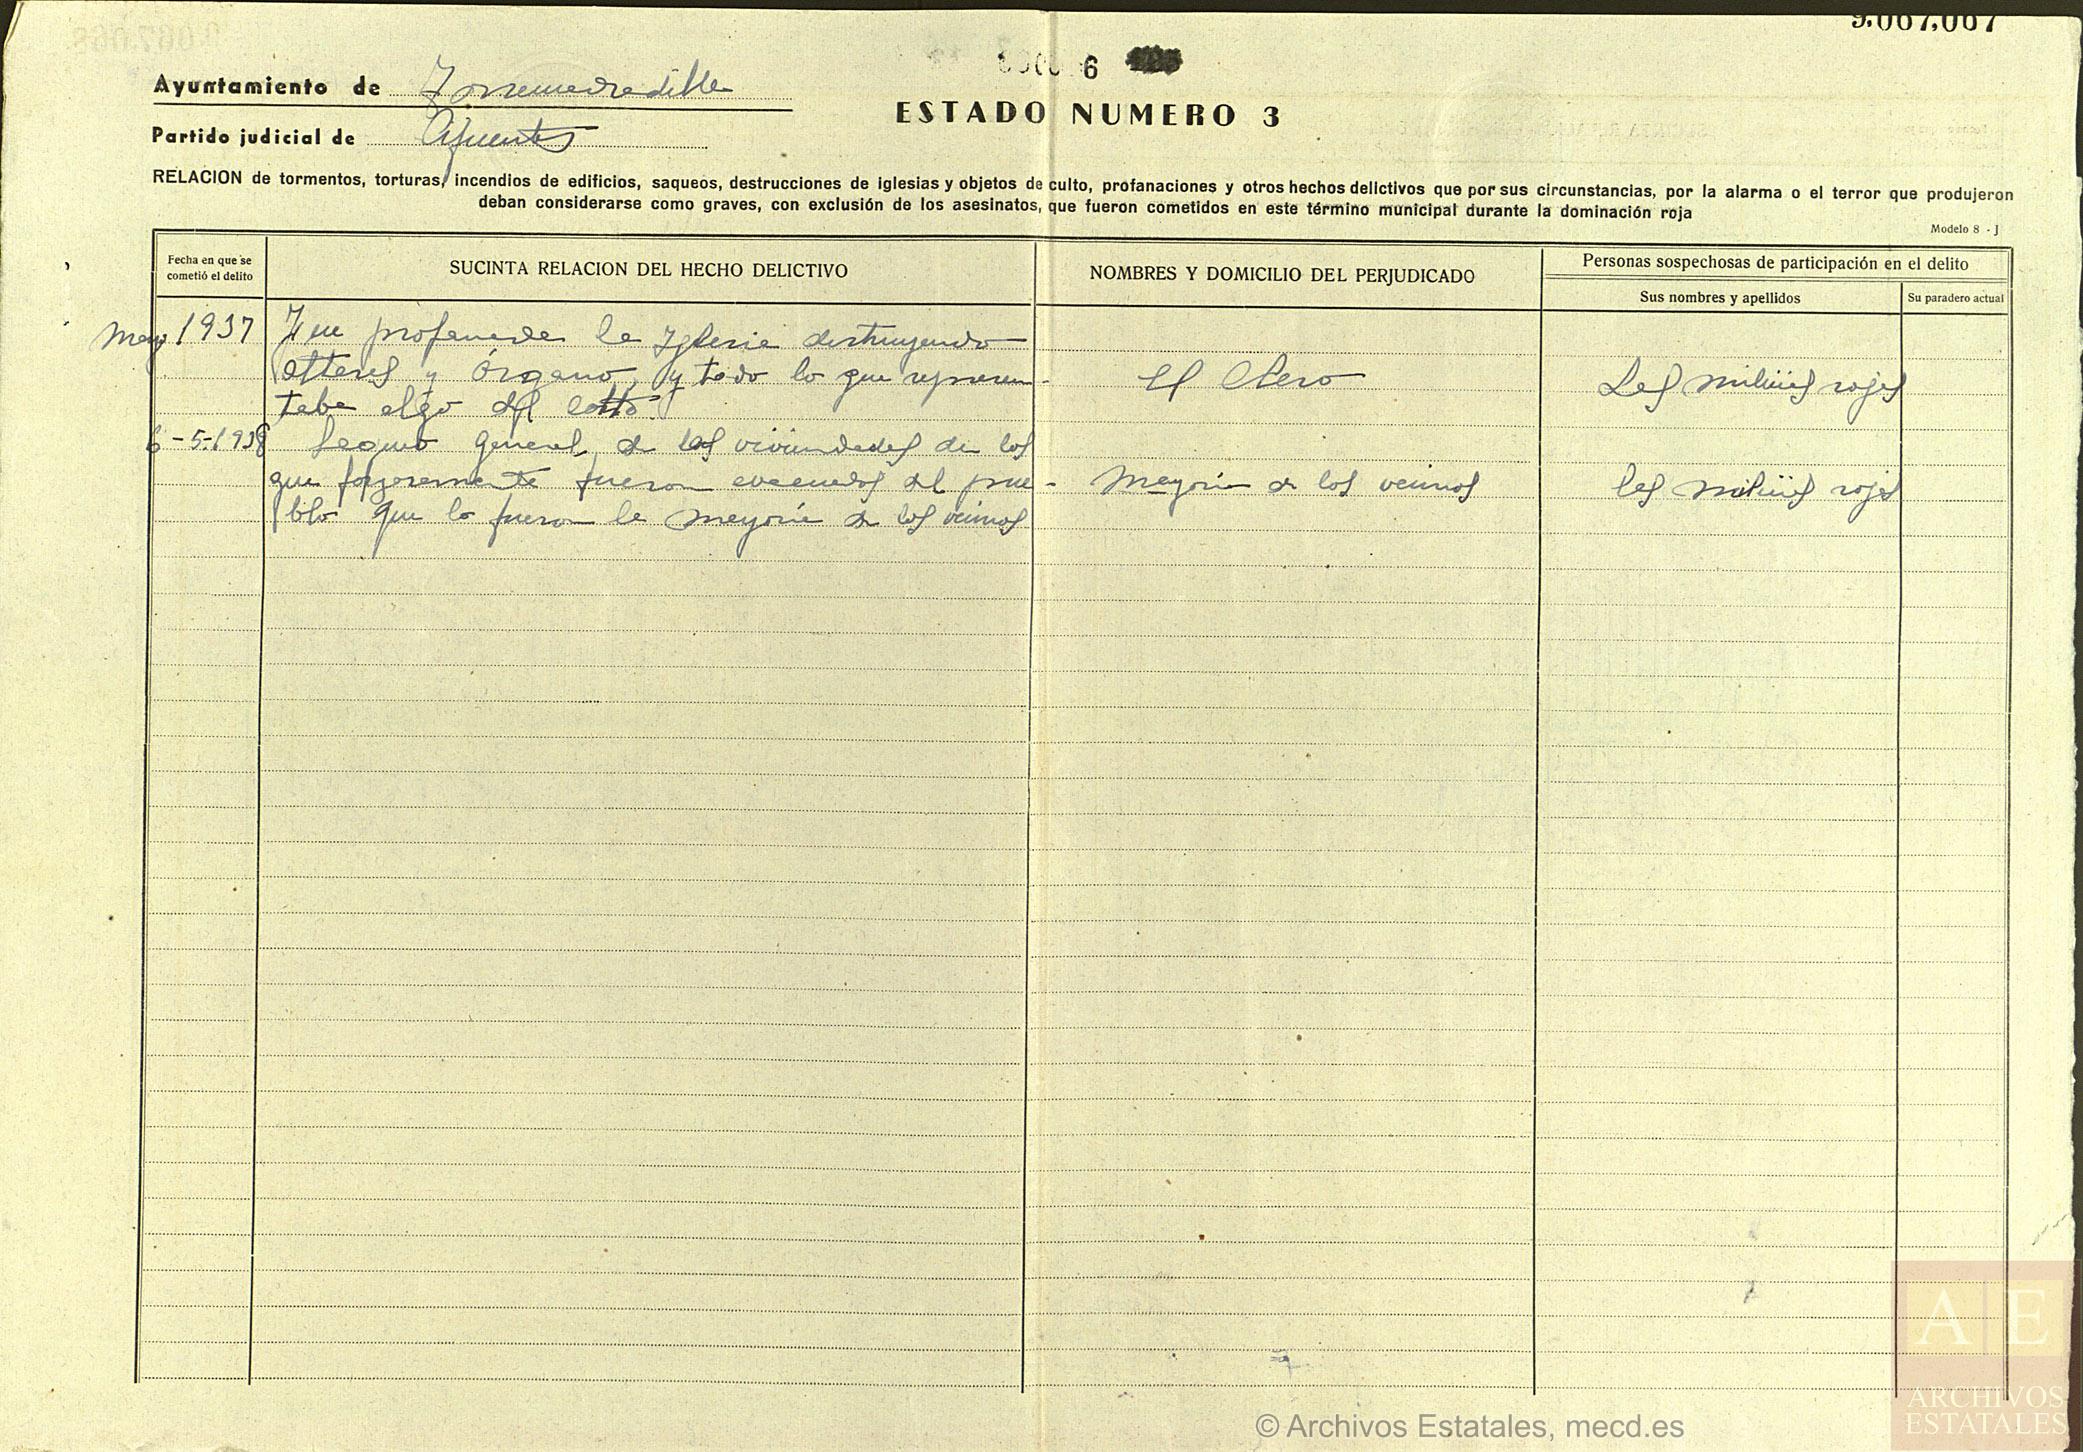 9.067.067
6
Ayuntamiento de Torrecuadradilla
ESTADO NUMERO 3
Partido judicial de Cifuentes
RELACION de tormentos, torturas, incendios de edificios, saqueos, destrucciones de iglesias y objetos de culto, profanaciones y otros hechos delictivos que por sus circunstancias, por la alarma o el terror que produjeron
deban considerarse como graves, con exclusión de los asesinatos, que fueron cometidos en este término municipal durante la dominación roja
Modelo 8 - J
Fecha en que se cometió el delito
SUCINTA RELACION DEL HECHO DELICTIVO
NOMBRES Y DOMICILIO DEL PERJUDICADO
Personas sospechosas de participación en el delito
Sus nombres y apellidos
Su paradero actual
Mayo 1937 Fue profanada la Iglesia destruyendo
altares y Órgano, y todo lo que represen- El Clero Las milicias rojas
taba algo del culto
6-5-1938 Saqueo general de las viviendas de los
que forzosamente fueron evacuados del pue- Mayoria de los vecinos las milicias rojas
blo que lo fueron la mayoría de los vecinos
AE
ARCHIVOS
ESTATALES
© Archivos Estatales, mecd.es